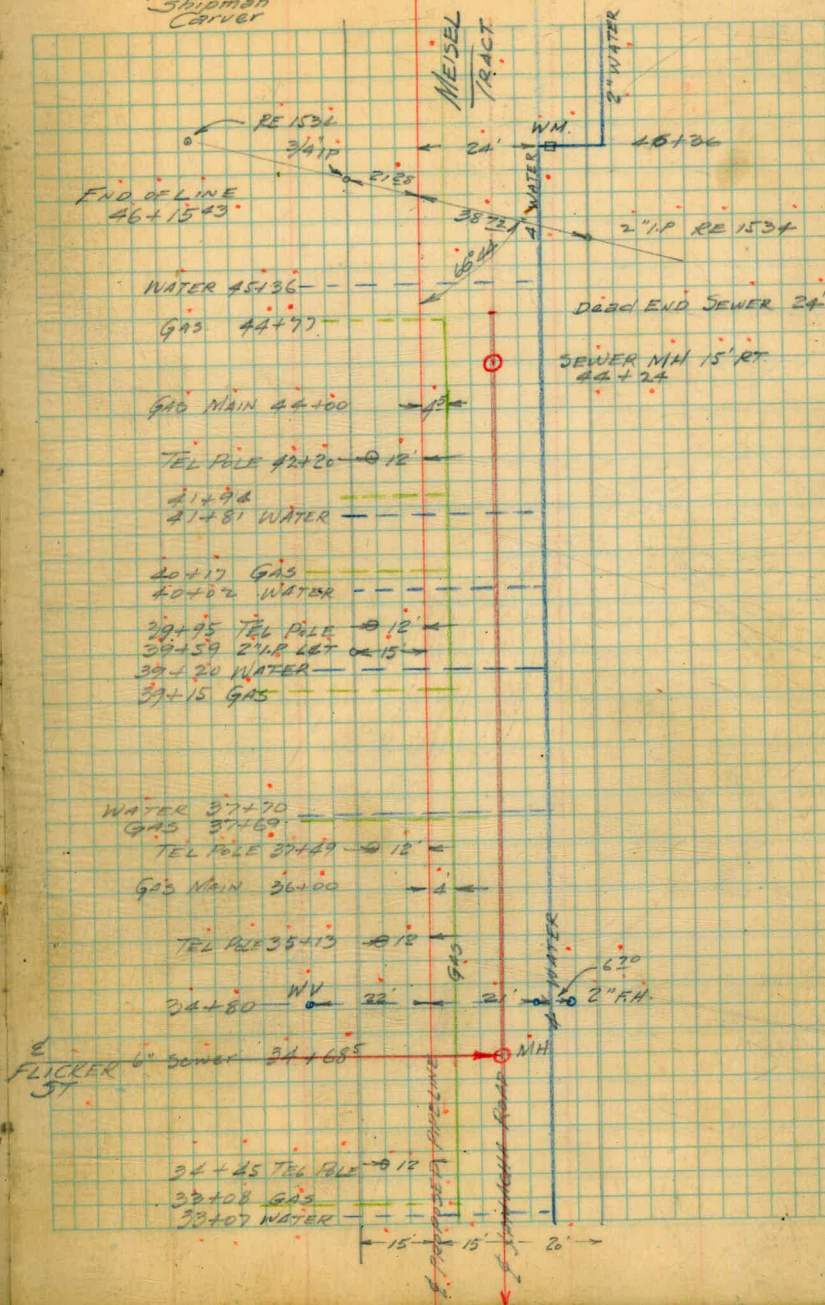 Shipman
Carver
MEISEL
TRACT
2" WATER
RE 1534
3/4 IP
24'
W.M.
46+36
4" WATER
21 28
END OF LINE
46+15 43
38 72
2" I.P. RE 1534
WATER 45+36
Dead END SEWER 24'
GAS 44+77
SEWER MH 15' RT.
44+24
GAS MAIN 44+00 4 5
TEL POLE 42+20 12'
41+94
41+81 WATER
40+17 GAS
40+02 WATER
39+95 TEL POLE 12'
39+59 2" I.P. LEFT 15'
39+20 WATER
39+15 GAS
WATER 37+70
GAS 37+69
TEL POLE 37+49 12'
GAS MAIN 36+00 4'
TEL POLE 35+13 12
GAS
4" WATER
6 20
34+80 WV 22' 21' 2" F.H.
℄
FLICKER
ST
6" Sewer 34+68 5
MH
34+45 TEL POLE 12
33+08 GAS
33+07 WATER
15' 15' 20'
℄ PROPOSED PIPELINE